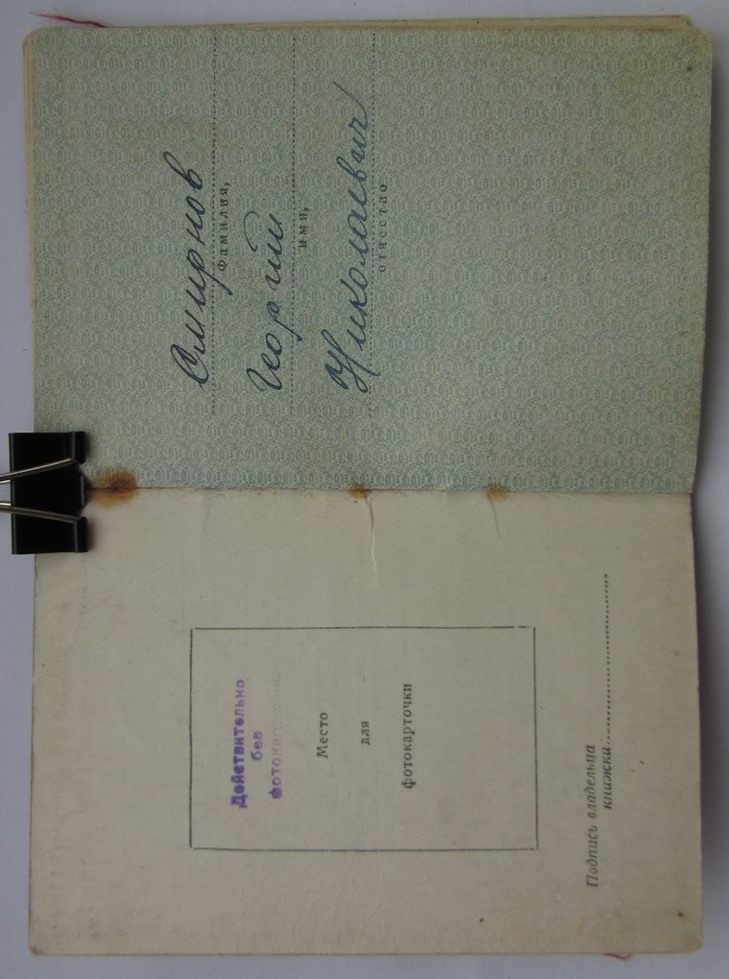 Действительно
без
фотокарточки
Место
для
фотокарточки
Подпись владельца
книжки
Смирнов
фамилия,
Георгий
имя,
Николаевич
отчество